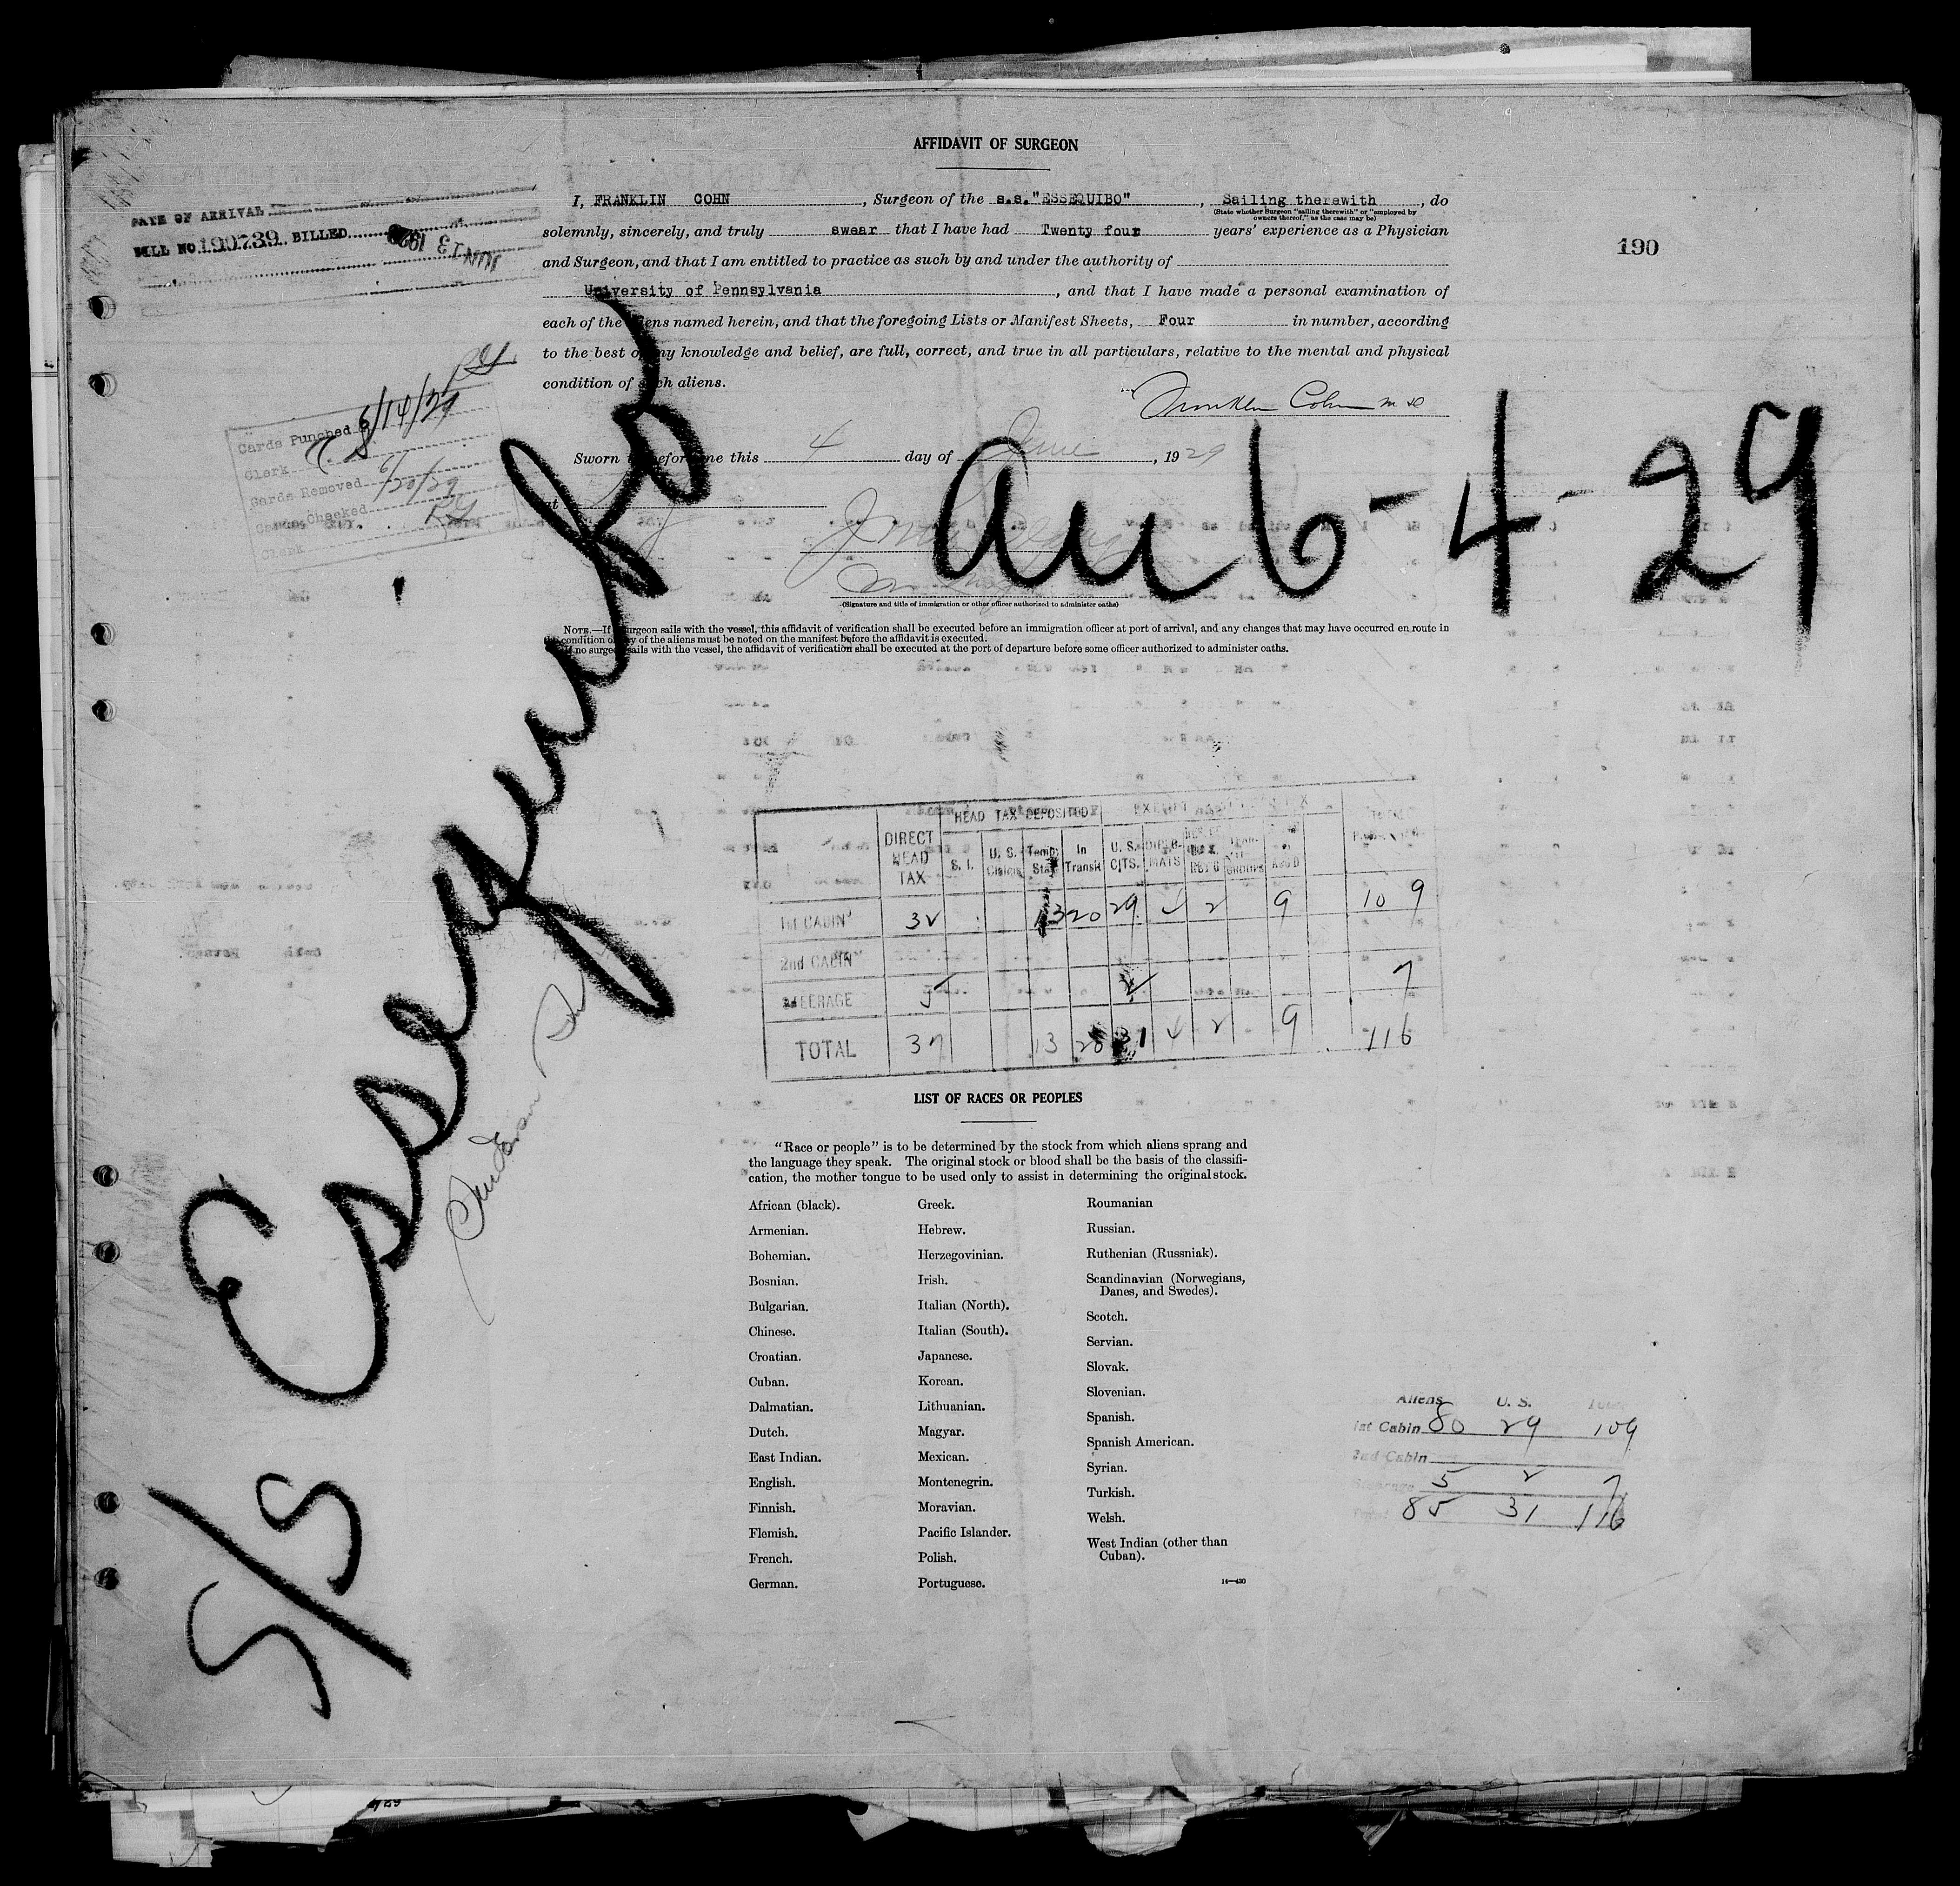 AFFIDAVIT OF SURGEON
I, FRANKLIN COHN, Surgeon of the s.s. "ESSEQUIBO", Sailing therewith, do
(State whether Surgeon "sailing therewith" or "employed by
owners thereof," as the case may be)
solemnly, sincerely, and truly swear that I have had Twenty four years' experience as a Physician
and Surgeon, and that I am entitled to practice as such by and under the authority of
University of Pennsylvania, and that I have made a personal examination of
each of the aliens named herein, and that the foregoing Lists or Manifest Sheets, Four in number, according
to the best of my knowledge and belief, are full, correct, and true in all particulars, relative to the mental and physical
condition of such aliens.
Franklin Cohn MD
Sworn to before me this 4 day of June, 1929
at
(Signature and title of immigration or other officer authorized to administer oaths)
NOTE.—If surgeon sails with the vessel, this affidavit of verification shall be executed before an immigration officer at port of arrival, and any changes that may have occurred en route in
the condition of any of the aliens must be noted on the manifest before the affidavit is executed.
If no surgeon sails with the vessel, the affidavit of verification shall be executed at the port of departure before some officer authorized to administer oaths.
DATE OF ARRIVAL
BILL NO. 190739 BILLED JUN 13 1929
190
Cards Punched 6/14/29
Clerk
Cards Removed 6/20/29
Cards Checked
Clerk
S/S Essequibo
6-4-29
DIRECT HEAD TAX HEAD TAX DEPOSITED
S. I. U. S. Temp. Stay In Transit U. S. CITS. DIPLO-MATS
1st CABIN 32 13 20 29 4 2 9 109
2nd CABIN
STEERAGE 5 2 7
TOTAL 37 13 20 31 4 2 9 116
LIST OF RACES OR PEOPLES
"Race or people" is to be determined by the stock from which aliens sprang and
the language they speak. The original stock or blood shall be the basis of the classifi-
cation, the mother tongue to be used only to assist in determining the original stock.
African (black).
Armenian.
Bohemian.
Bosnian.
Bulgarian.
Chinese.
Croatian.
Cuban.
Dalmatian.
Dutch.
East Indian.
English.
Finnish.
Flemish.
French.
German.
Greek.
Hebrew.
Herzegovinian.
Irish.
Italian (North).
Italian (South).
Japanese.
Korean.
Lithuanian.
Magyar.
Mexican.
Montenegrin.
Moravian.
Pacific Islander.
Polish.
Portuguese.
Roumanian
Russian.
Ruthenian (Russniak).
Scandinavian (Norwegians,
Danes, and Swedes).
Scotch.
Servian.
Slovak.
Slovenian.
Spanish.
Spanish American.
Syrian.
Turkish.
Welsh.
West Indian (other than
Cuban).
14—430
Aliens U. S. Total
1st Cabin 80 29 109
2nd Cabin
Steerage 5 2 7
Total 85 31 116